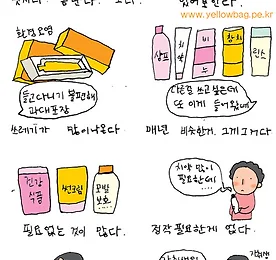 www.yellowbag.pe.kr
환경오염
들고다니기 불편해
과대포장
쓰레기가 많이나온다
샴푸
치약
비누
참치
린스
다른걸 쓰고싶은데
또 이게 들어왔네
매년 비슷한거. 그게그거다
건강
식품
썬크림
모발
보호..
필요없는 것이 많다.
치약 많이
필요한데...
정작 필요한게 없다.